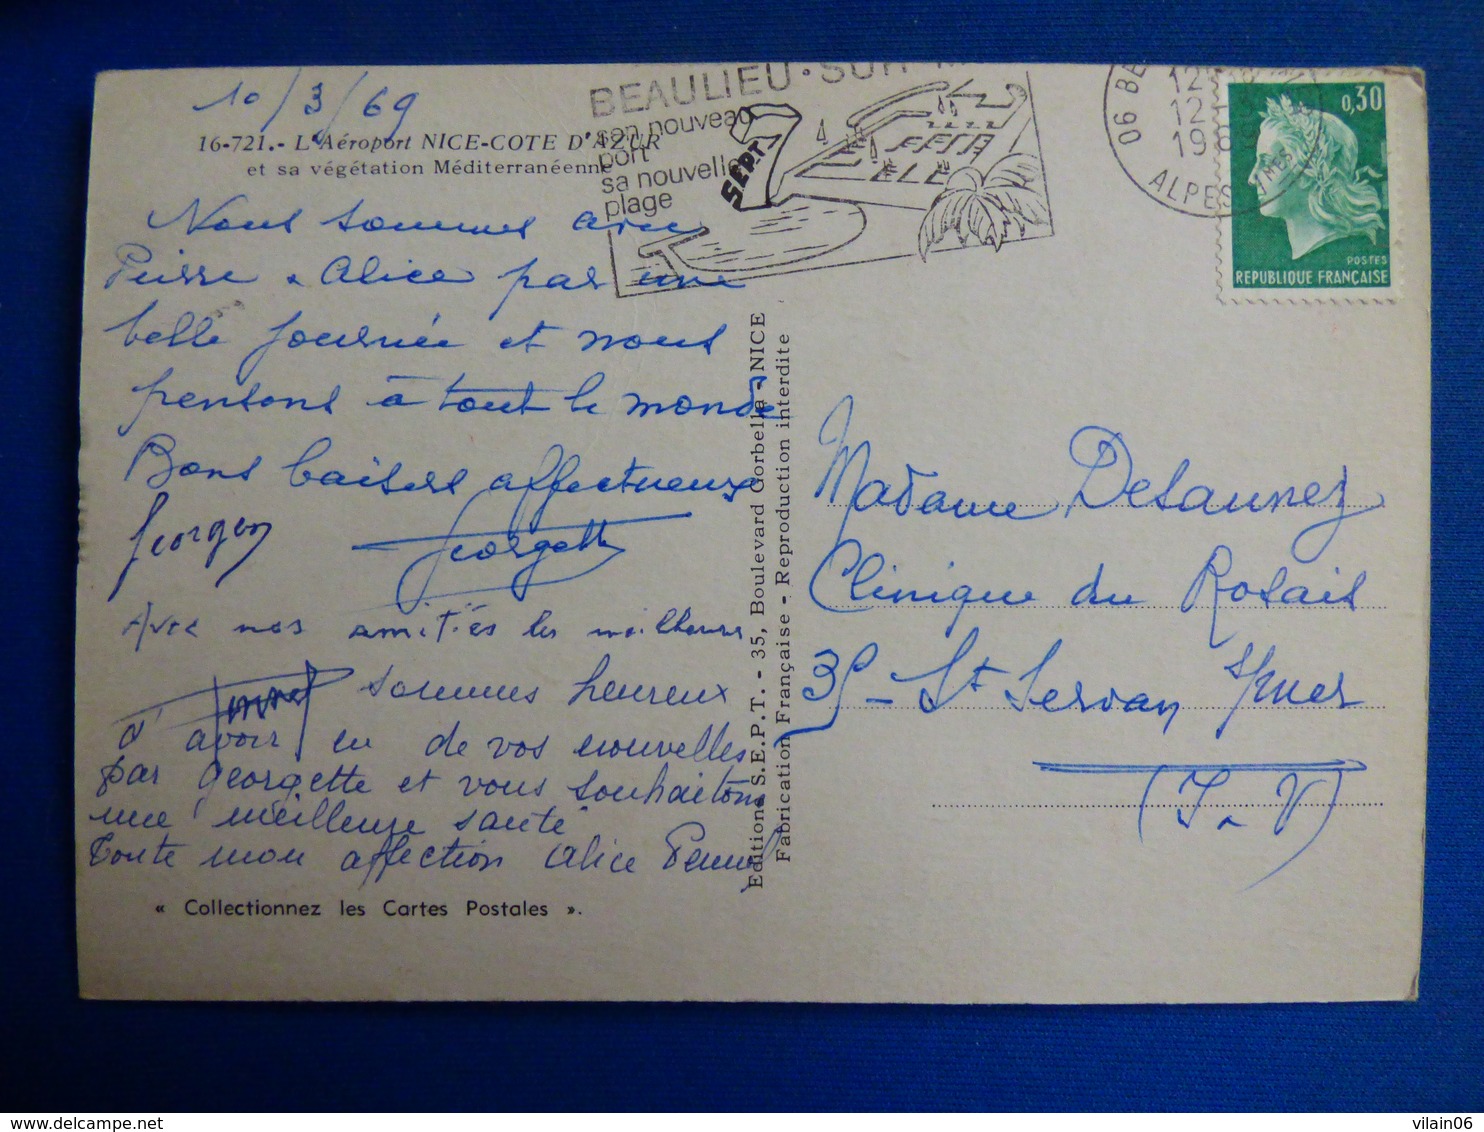 10/3/69
16-721.- L'Aéroport NICE-COTE D'AZUR
et sa végétation Méditerranéenne
Nous sommes avec
Pierre & Alice par une
belle journée et nous
pensons à tout le monde
Bons baisers affectueux
Georges Georgette
Avec nos amitiés les meilleures
sommes heureux
d'avoir eu de vos nouvelles
par Georgette et vous souhaitons
une meilleure santé
Toute mon affection Alice
« Collectionnez les Cartes Postales ».
Editions S.E.P.T. - 35, Boulevard Gorbella - NICE
Fabrication Française - Reproduction interdite
BEAULIEU-SUR-
son nouveau
port
sa nouvelle
plage
SEPT
06 BE
12
19
ALPES MMES
0,30
POSTES
REPUBLIQUE FRANÇAISE
Madame Desaunez
Clinique du Rosais
35 - St Servan s/mer
(I-V)
delcampe.net
vilain06